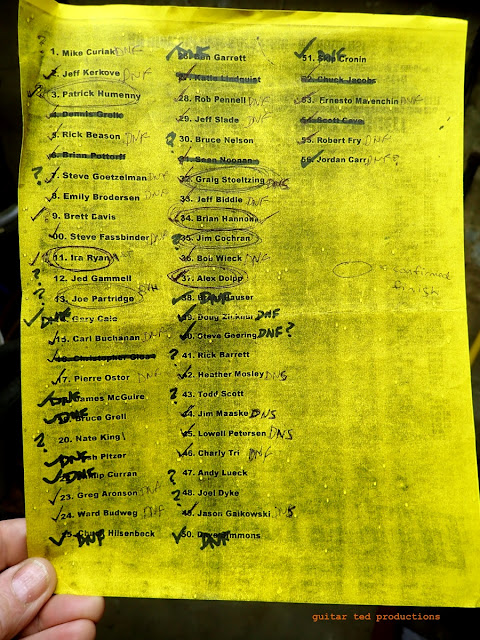 ?
1. Mike Curiak DNF
2. Jeff Kerkove DNF
? 3. Patrick Humenny
4. Dennis Grelle
5. Rick Beason DNF
6. Brian Potterff
? 7. Steve Goetzelman DNF
8. Emily Brodersen DNF
9. Brett Davis
10. Steve Fassbinder DNF
11. Ira Ryan
? 12. Jed Gammell
? 13. Joe Partridge
DNF Gary Cale
15. Carl Buchanan DNF
16. Christopher
17. Pierre Ostor DNF
DNF James McGuire
DNF Bruce Grell
? 20. Nate King
DNF Pitzer
DNF Curran
23. Greg Aronson DNF
24. Ward Budweg DNF
DNF Hilsenbeck
DNF Garrett
27. Katie Lindquist
28. Rob Pennell DNF
29. Jeff Slade DNF
? 30. Bruce Nelson
31. Sean Noonan
32. Graig Stoeltzing DNS
33. Jeff Biddle DNF
34. Brian Hannon
35. Jim Cochran
36. Bob Wieck DNF
37. Alex Dolpp
38. Hauser
39. Doug DNF
40. Steve Goering DNF?
? 41. Rick Barrett
42. Heather Mosley DNS
? 43. Todd Scott
44. Jim Maaske DNS
45. Lowell Petersen DNS
46. Charly Tri DNF
? 47. Andy Lueck
? 48. Joel Dyke
49. Jason Gaikowski DNS
50. DNF Simmons
51. DNF Cronin
52. Chuck Jacobs
53. Ernesto Marenchin DNF
54. Scott Cave
55. Robert Fry DNF
56. Jordan Carr DNF?
= confirmed
finish
guitar ted productions